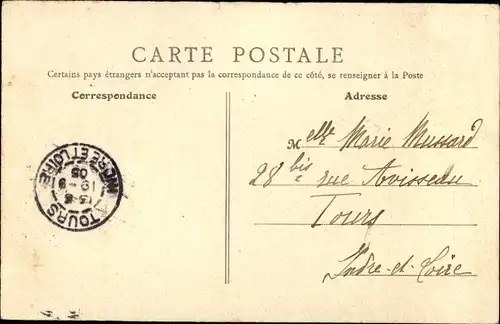 CARTE POSTALE
Certains pays étrangers n'acceptant pas la correspondance de ce côté, se renseigner à la Poste
Correspondance
Adresse
Melle Marie Mussard
28 bis rue Avisseau
Tours
Indre-et-Loire
TOURS
INDRE ET LOIRE